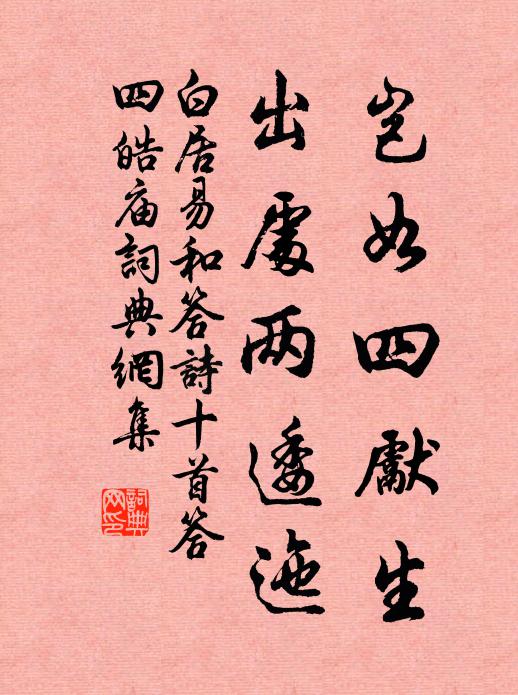 岂如四獻生
出處两逶迤
白居易和答詩十首答
四皓庙詞典網集
詞典
网印